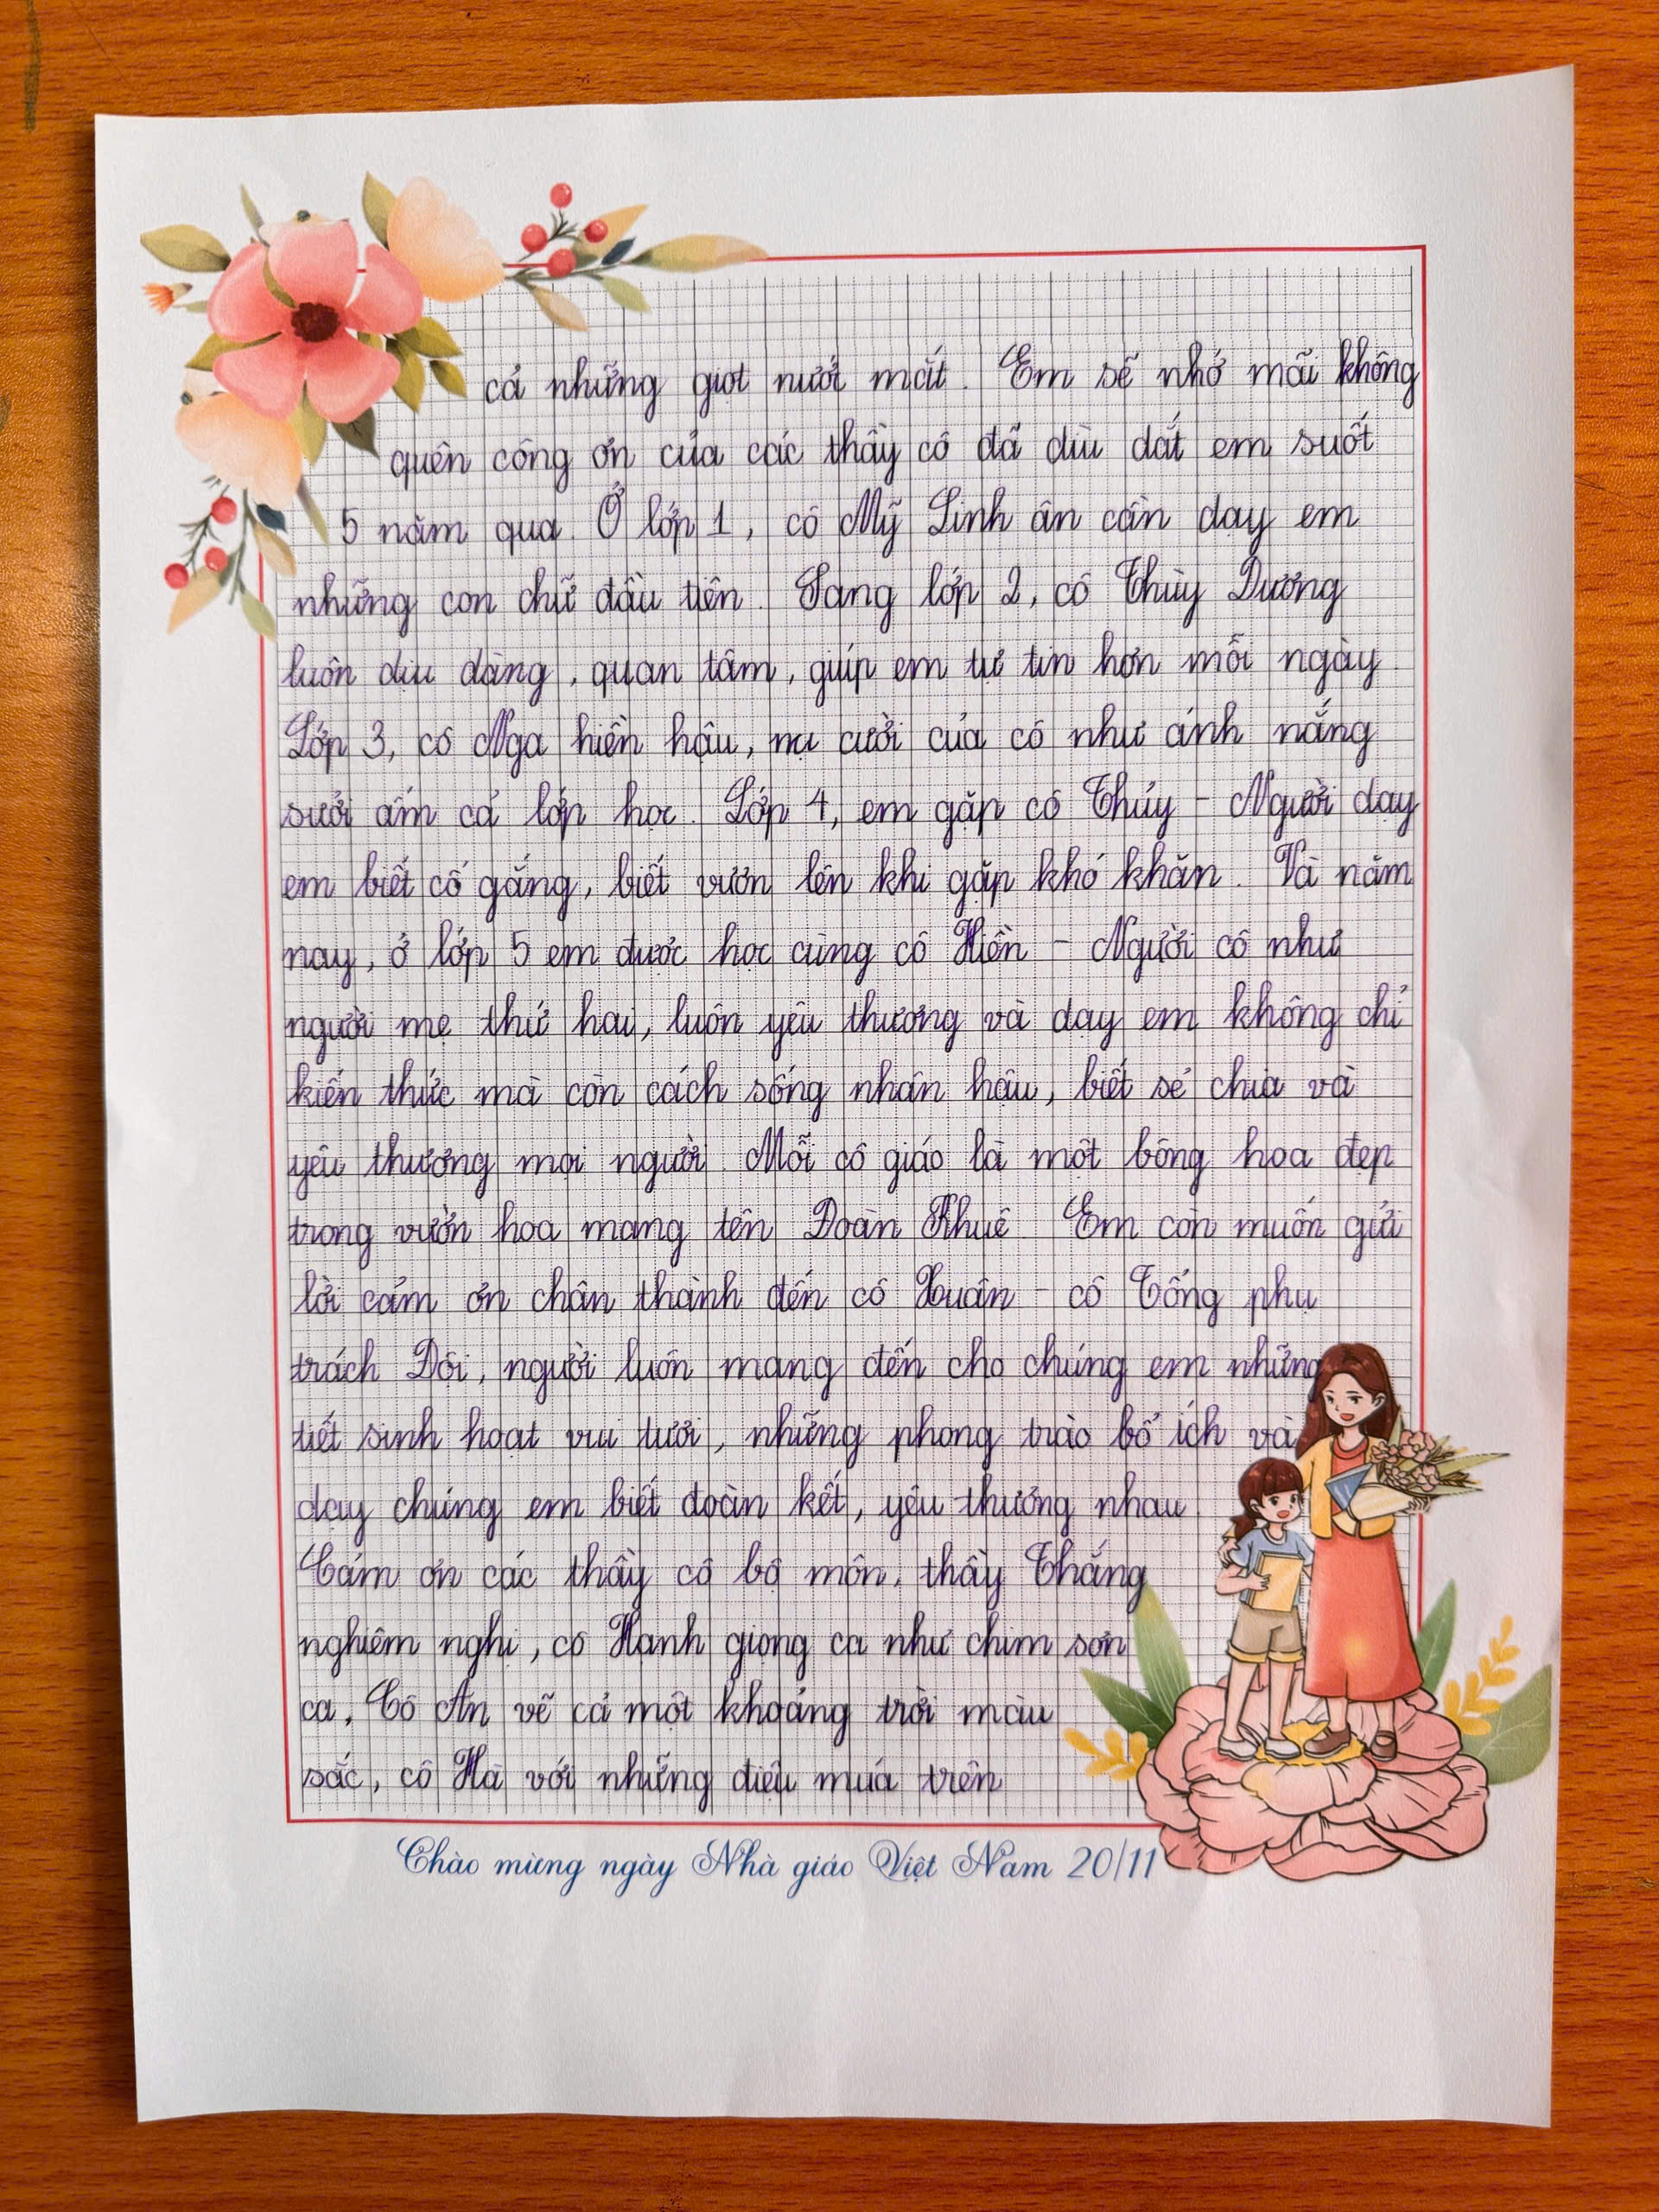 cả những giọt nước mắt. Em sẽ nhớ mãi không
quên công ơn của các thầy cô đã dìu dắt em suốt
5 năm qua. Ở lớp 1, cô Mỹ Linh ân cần dạy em
những con chữ đầu tiên. Sang lớp 2, cô Thùy Dương
luôn dịu dàng, quan tâm, giúp em tự tin hơn mỗi ngày.
Lớp 3, cô Nga hiền hậu, nụ cười của cô như ánh nắng
sưởi ấm cả lớp học. Lớp 4, em gặp cô Thủy - Người dạy
em biết cố gắng, biết vươn lên khi gặp khó khăn. Và năm
nay, ở lớp 5 em được học cùng cô Hiền - Người cô như
người mẹ thứ hai, luôn yêu thương và dạy em không chỉ
kiến thức mà còn cách sống nhân hậu, biết sẻ chia và
yêu thương mọi người. Mỗi cô giáo là một bông hoa đẹp
trong vườn hoa mang tên Đoàn Khuê. Em còn muốn gửi
lời cảm ơn chân thành đến cô Xuân - cô Tổng phụ
trách Đội, người luôn mang đến cho chúng em những
tiết sinh hoạt vui tươi, những phong trào bổ ích và
dạy chúng em biết đoàn kết, yêu thương nhau.
Cảm ơn các thầy cô bộ môn, thầy Thắng
nghiêm nghị, cô Hạnh giọng ca như chim sơn
ca. Cô An vẽ cả một khoảng trời màu
sắc, cô Hà với những điệu múa trên
Chào mừng ngày Nhà giáo Việt Nam 20/11